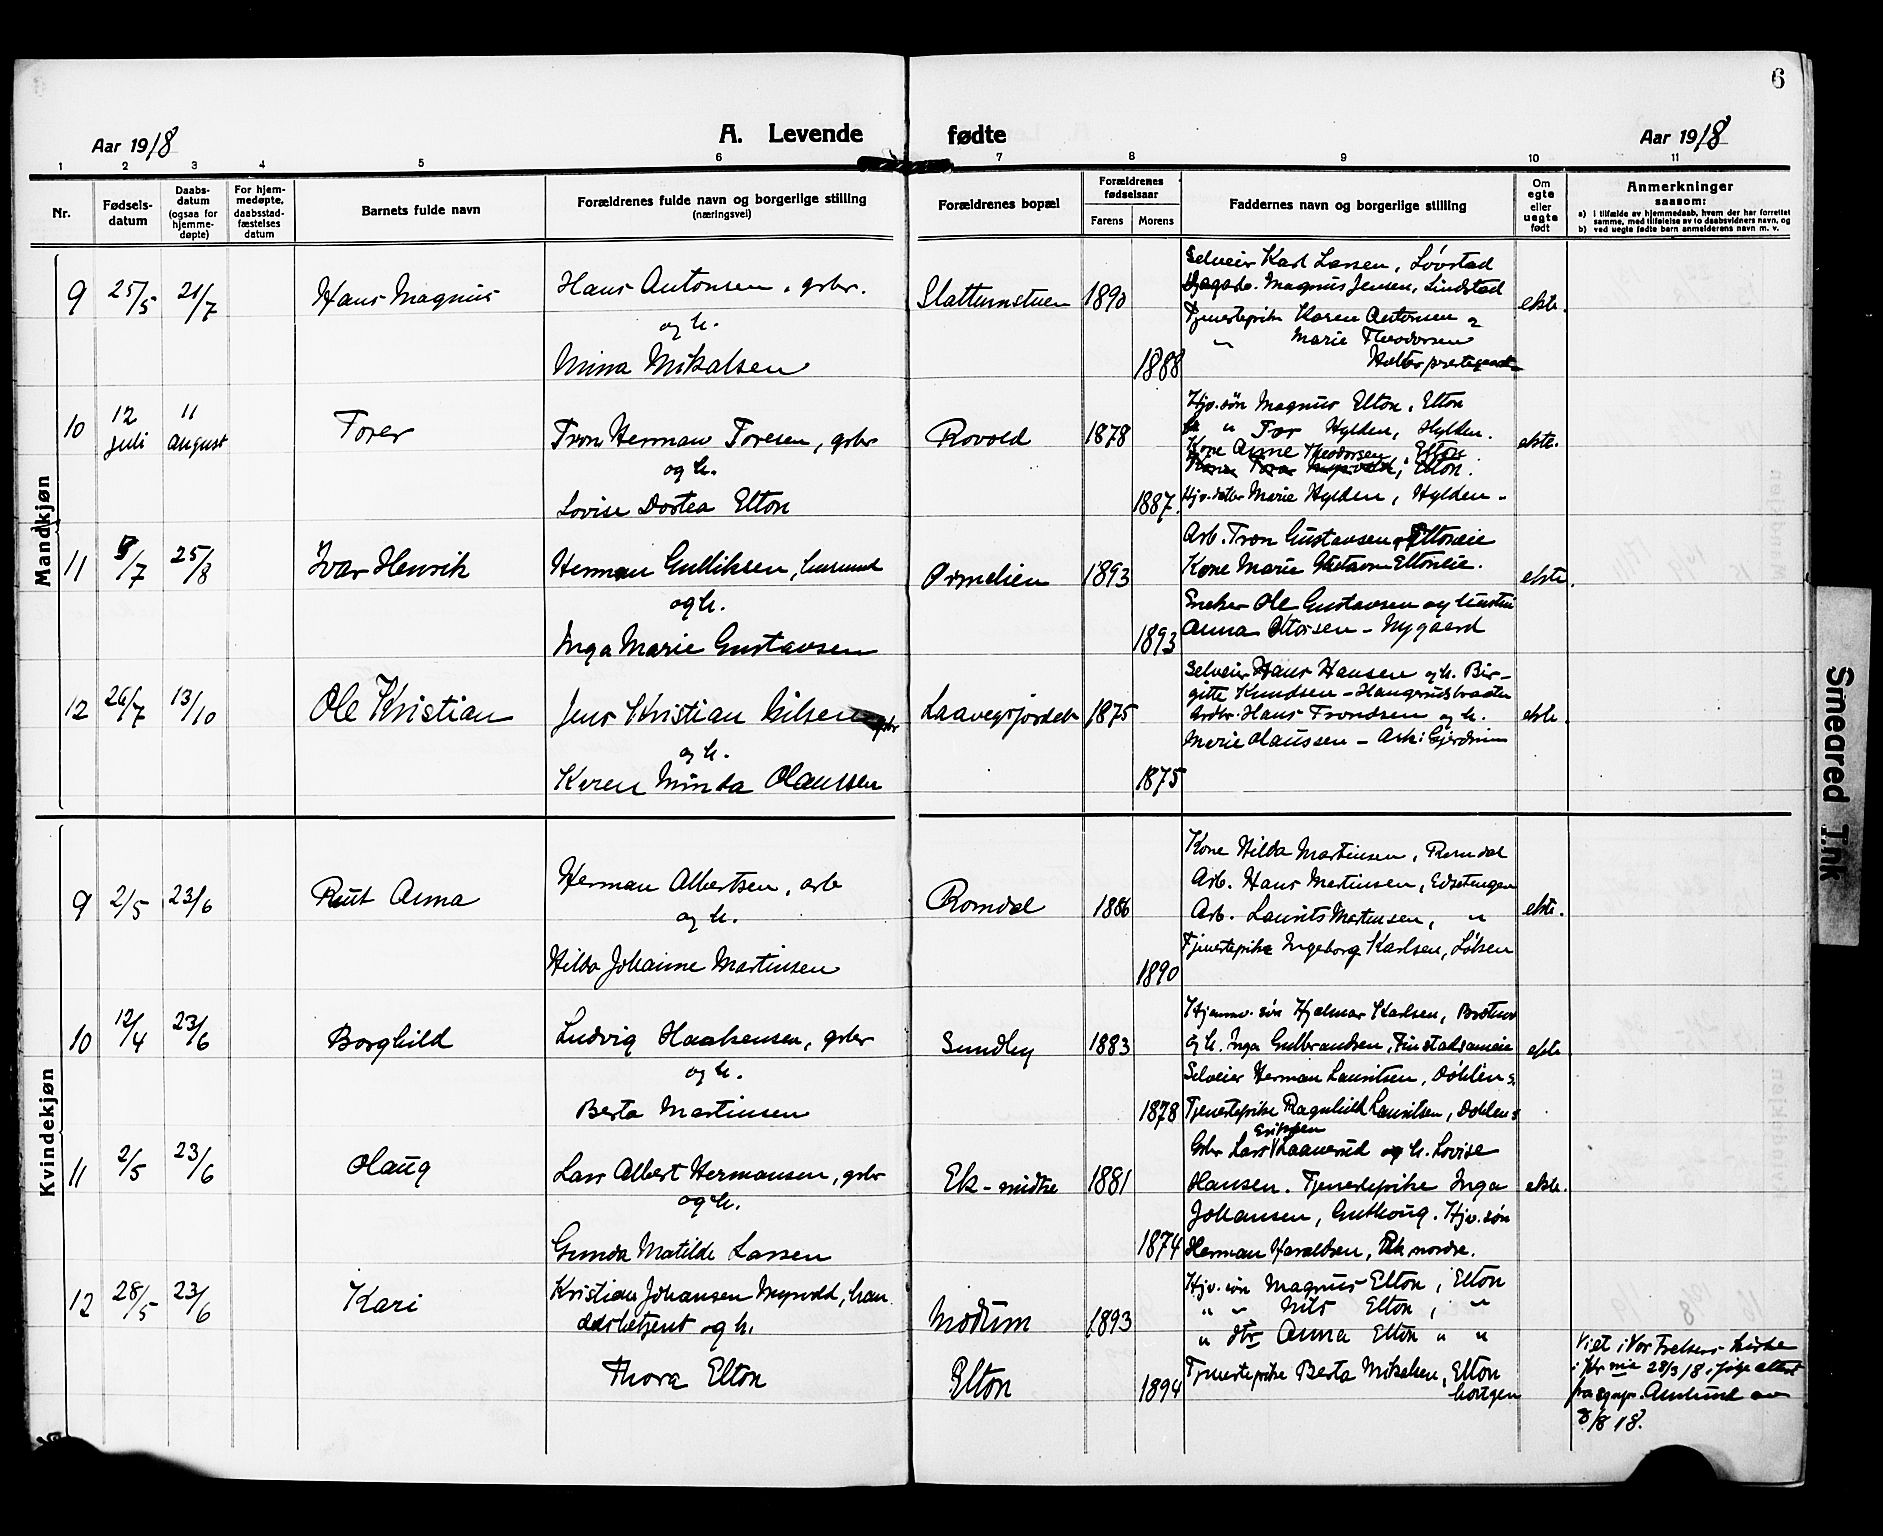 6
Aar 1918
A. Levende fødte
Aar 1918
1 2 3 4 5 6 7 8 9 10 11
Nr.
Fødsels-
datum
Daabs-
datum
(ogsaa for
hjemme-
døpte)
For hjem-
medøpte,
daabsstad-
fæstelses
datum
Barnets fulde navn
Forældrenes fulde navn og borgerlige stilling
(næringsvei)
Forældrenes bopæl
Forældrenes
fødselsaar
Farens Morens
Faddernes navn og borgerlige stilling
Om
egte
eller
uegte
født
Anmerkninger
saasom:
a) i tilfælde av hjemmedaab, hvem der har forrettet
samme, med tilføielse av to daabsvidners navn, og
b) ved uegte fødte barn anmelderens navn m. v.
Mandkjøn
9 25/5 21/7 Hans Magnus
Hans Antonsen, gbr.
og h.
Minna Mikalsen
Slattumstuen 1890
1888
Selveier Karl Larsen, Lövstad
Magnus Jensen, Lindstad
Tjenestepike Karen Antonsen og
" Marie Theodorsen
Holter prestegaard
ekte.
10 12 juli 11 august Torer
Tron Herman Toresen, gbr
og h.
Lovise Dortea Elton
Rovold 1878
1887.
Hjv. søn Magnus Elton, Elton
" Tor Hylden, Hylden.
Kone Anne Theodorsen, Elton
Elton.
Hjv. datter Marie Hylden, Hylden.
ekte.
11 5/7 25/8 Ivar Henrik
Herman Gulliksen, husmand
og h.
Inga Marie Gustavsen
Ormelien 1893
1893
Arb. Tron Gustavsen, Eltoneie
Kone Marie Gustavsen Eltoneie.
Sneker Ole Gustavsen og hustru
Anna Ottosen - Nygaard
ekte.
12 26/7 13/10 Ole Kristian
Jens Kristian Nilsen gbr
og h.
Karen Minda Olaussen
Laavegsjordet 1875
1875
Selveier Hans Hansen og h. Bir-
gitte Knudsen - Haugerudbraaten
Hans Trondsen og h.
Marie Olaussen - Ask i Gjerdrum
ekte.
Kvindekjøn
9 2/5 23/6 Rut Anna
Herman Albertsen, arb
og h.
Hilda Johanne Martinsen
Romdal 1886
1890
Kone Hilda Martinsen, Romdal
Arb. Hans Martinsen, Edsetengen
Arb. Laurits Martinsen, "
Tjenestepike Ingeborg Karlsen, Löksen
ekte.
10 12/4 23/6 Borghild
Ludvig Haakensen, gbr
og h.
Berta Martinsen
Sundby 1883
1878
Hjemmv. søn Hjalmar Karlsen,
og h. Inga Gulbrandsen, Finstadsameie
Selveier Herman Lauritsen, Döhlen s.
Tjenestepike Ragnhild Lauritsen, Dohlen s
ekte
11 2/5 23/6 Olaug
Lars Albert Hermansen, gbr
og h.
Gunda Matilde Larsen
Ek - midtre 1881
1874
Eriksen
Gbr Lars Laanerud og h. Lovise
Hansen. Tjenestepike Inga
Johansen, Guthoug. Hjv. søn
Herman Haraldsen, Ek nordre.
ekte.
12 28/5 23/6 Kari
Kristian Johansen Myrvold, han
delsbetjent og h.
Thora Elton
Modum
Elton
1893
1894
Hjv. søn Magnus Elton, Elton
" " Nils Elton, "
" dtr Anna Elton " "
Tjenestepike Berta Mikalsen, Elton
Viet i Vor Frelsers kirke
i Kr.nia 28/3 18, ifølge attest
fra sgnpr. Amlund av
8/8 18.
Smeared Ink